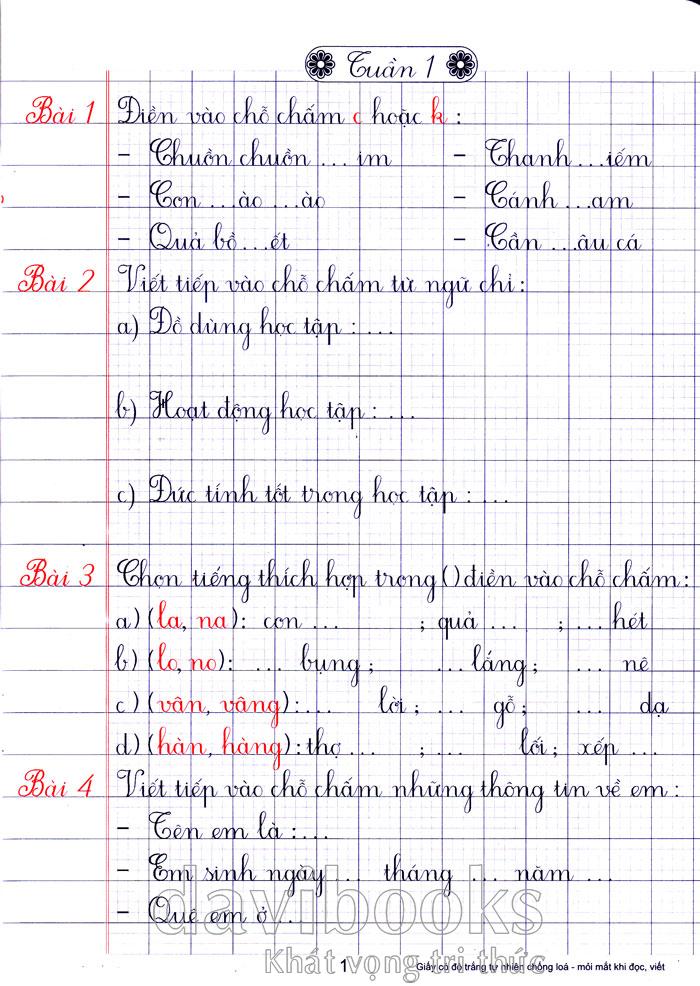 Tuần 1
Bài 1 Điền vào chỗ chấm c hoặc k :
- Chuồn chuồn ... im - Thanh ...iếm
- Con ...ào ...ào - Cánh ...am
- Quả bồ ...ết - Cần ...âu cá
Bài 2 Viết tiếp vào chỗ chấm từ ngữ chỉ :
a) Đồ dùng học tập : ...
b) Hoạt động học tập : ...
c) Đức tính tốt trong học tập : ...
Bài 3 Chọn tiếng thích hợp trong ( ) điền vào chỗ chấm :
a) (la, na): con ... ; quả ... ; ... hét
b) (lo, no): ... bụng ; ... lắng ; ... nê
c) (vân, vâng): ... lời ; ... gỗ ; ... dạ
d) (hàn, hàng): thợ ... ; ... lối ; xếp ...
Bài 4 Viết tiếp vào chỗ chấm những thông tin về em :
- Tên em là : ...
- Em sinh ngày ... tháng ... năm ...
- Quê em ở ...
davibooks
Khát vọng tri thức
1 Giấy có độ trắng tự nhiên chống loá - mỏi mắt khi đọc, viết